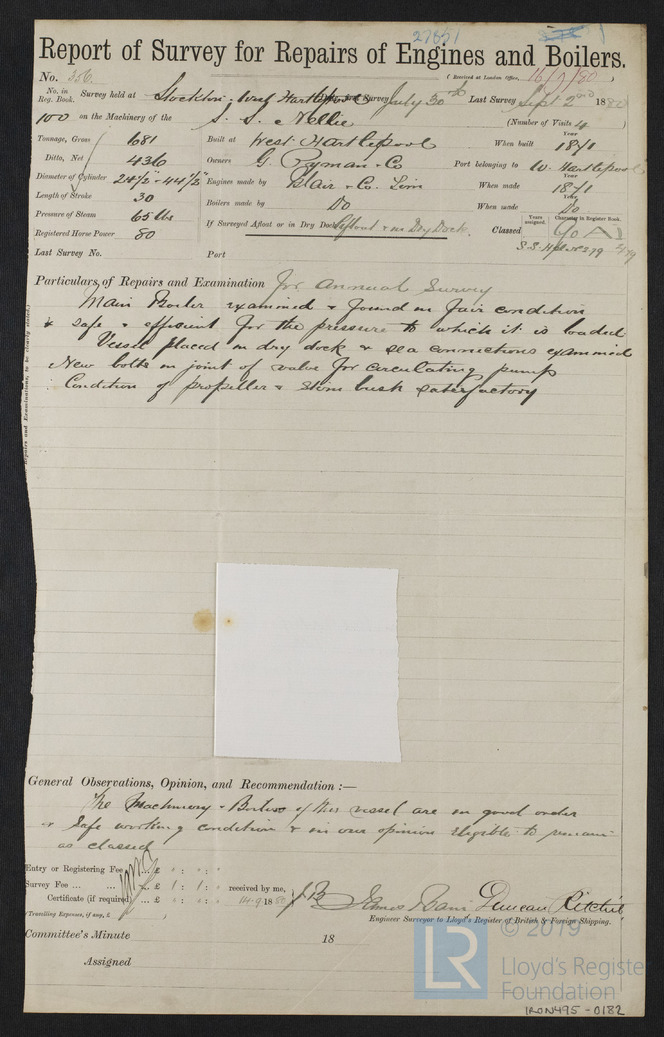 27657
Report of Survey for Repairs of Engines and Boilers.
No. 356. (Received at London Office, 16/9/80)
No. in Reg. Book. Survey held at Stockton & West Hartlepool Date, First Survey July 30th Last Survey Sept 2nd 1880
100 on the Machinery of the S. S. Nellie (Number of Visits 4)
Tonnage, Gross 681 Built at West Hartlepool When built 1871
Ditto, Net 436 Owners G. Pyman & Co Port belonging to W. Hartlepool
Diameter of Cylinder 24½" - 44½" Engines made by Blair & Co. Lim When made 1871
Length of Stroke 30 Boilers made by Do When made Do
Pressure of Steam 65 lbs If Surveyed Afloat or in Dry Dock Afloat & in Dry Dock. Classed Years assigned. Character in Register Book. 90 A1
Registered Horse Power 80 S.S. Hpl No 2 79
Last Survey No. Port
Particulars of Repairs and Examination for Annual Survey
Main Boiler examined & found in fair condition
& safe & efficient for the pressure to which it is loaded
Vessel placed in dry dock & sea connections examined
New bolts in joint of valve for circulating pump
Condition of propeller & stern bush satisfactory
Repairs and Examinations, to be clearly stated.)
General Observations, Opinion, and Recommendation :—
The Machinery & Boilers of this vessel are in good order
& safe working condition & in our opinion eligible to remain
as classed
Entry or Registering Fee ... £ : :
Survey Fee ... ... £ 1 : 1 : received by me,
Certificate (if required) ... £ : : 14.9.1880
(Travelling Expenses, if any, £ ) James Bain Duncan Ritchie
Engineer Surveyor to Lloyd's Register of British & Foreign Shipping.
Committee's Minute 18
Assigned
LR © 2019
Lloyd's Register
Foundation
IRON495-0182